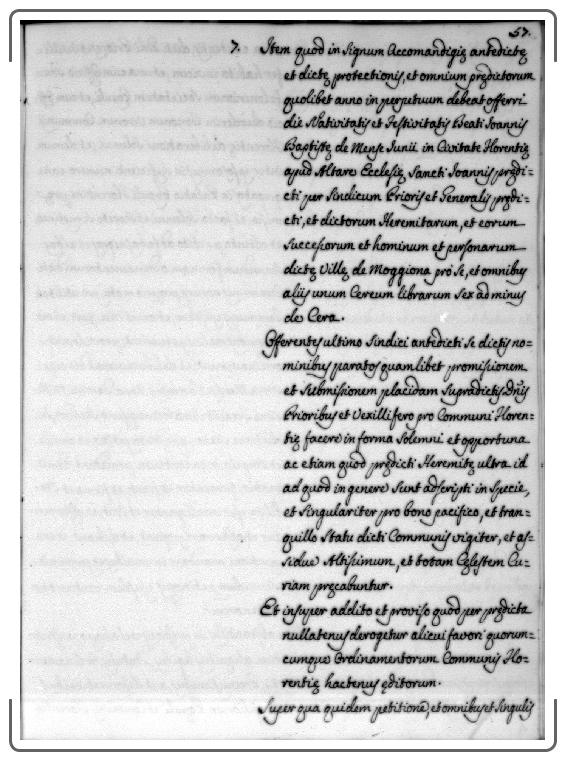 57.
7. Item quod in signum Accomandigię antedictę
et dictę protectionis, et omnium prędictorum
quolibet anno in perpetuum debeat offerri
die Nativitatis et Festivitatis Beati Ioannis
Baptistę de Mense Iunii in Civitate Florentię
apud Altare Ecclesię Sancti Ioannis prędi=
cti per Sindicum Prioris et Generalis prędi=
cti, et dictorum Heremitarum, et eorum
successorum et hominum et personarum
dictę Villę de Moggiona pro se, et omnibus
aliis unum Cereum librarum sex ad minus
de Cera.
Offerentes ultimo Sindici antedicti se dictis no=
minibus paratos quamlibet promissionem
et submissionem placidam supradictis Dñis
Prioribus et Vexillifero pro Communi Floren=
tię facere in forma solemni et opportuna
ac etiam quod prędicti Heremitę ultra id
ad quod in genere sunt adscripti in specie,
et singulariter pro bono pacifico, et tran=
quillo statu dicti Communis vigiter, et as=
sidue Altissimum, et totam Cęlestem Cu=
riam pręcabuntur.
Et insuper addito et proviso quod per prędicta
nullatenus derogetur alicui favori quorum=
cumque Ordinamentorum Communis Flo=
rentię hactenus ęditorum.
Super qua quidem petitione, et omnibus et singulis